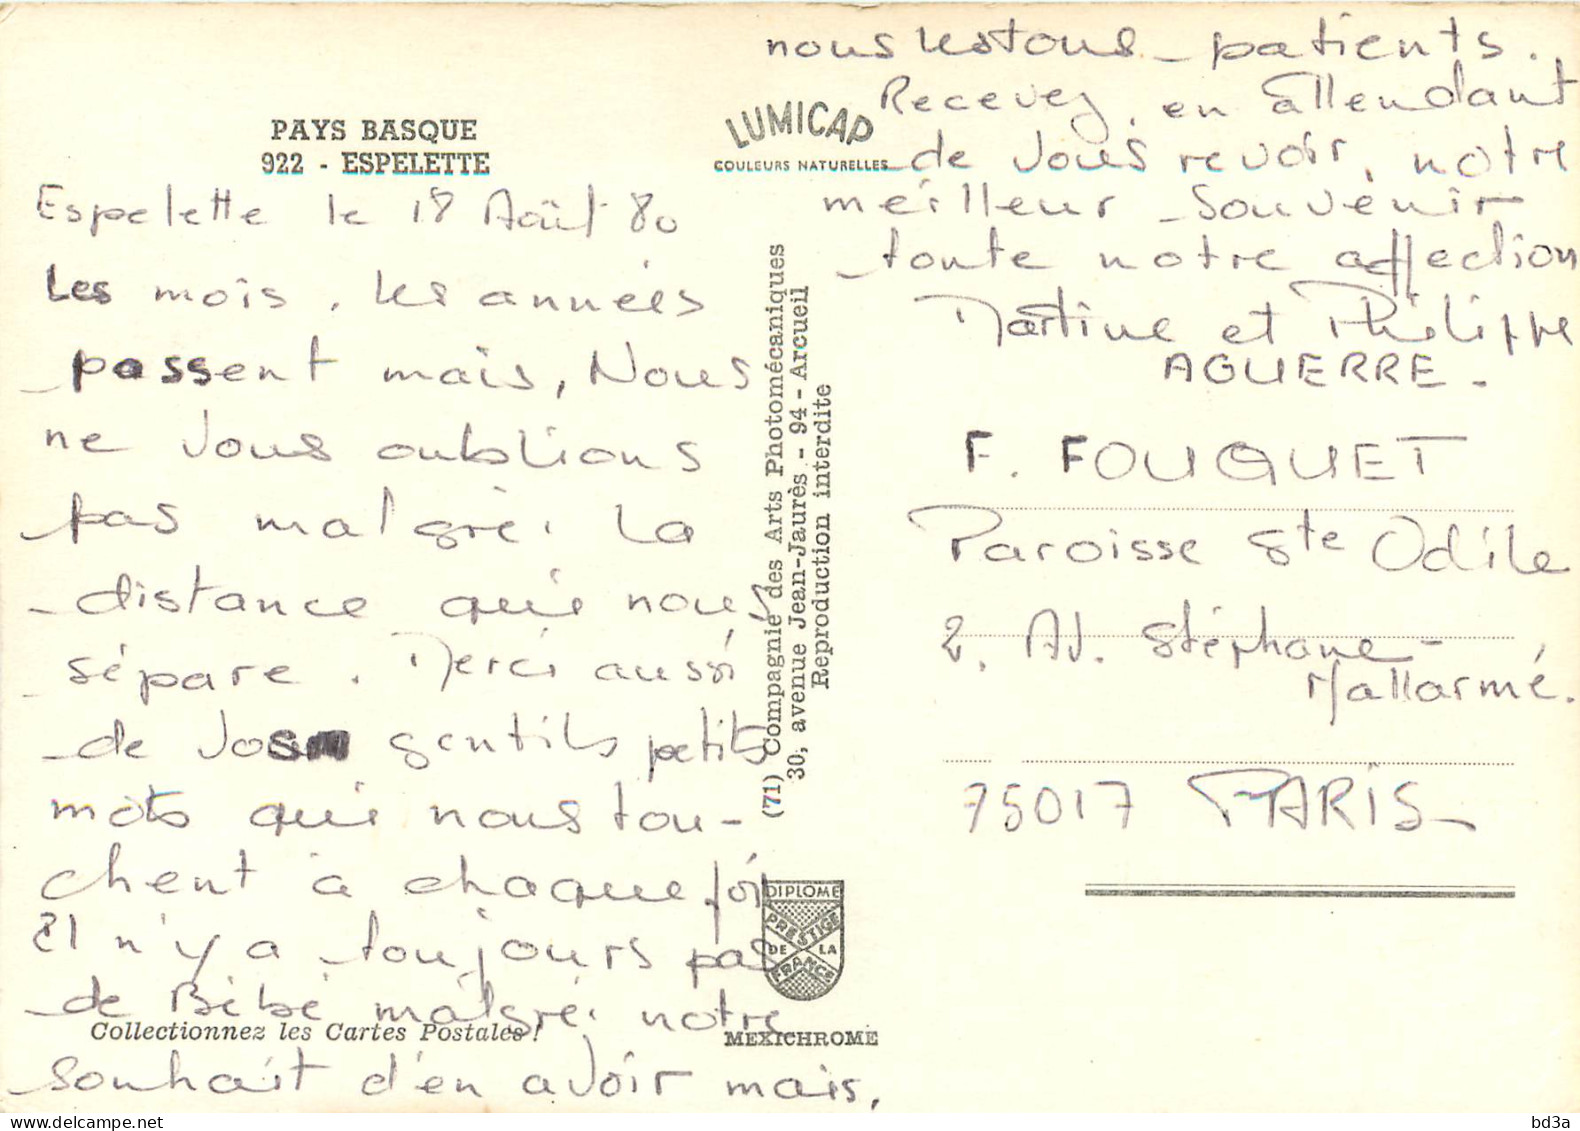 PAYS BASQUE
922 - ESPELETTE
Espelette le 18 Août 80
Les mois, les années
passent mais, Nous
ne vous oublions
pas malgré la
distance qui nous
sépare. Merci aussi
de vos gentils petits
mots qui nous tou-
chent à chaque fois
Il n'y a toujours pas
de Bébé malgré notre
souhait d'en avoir mais,
Collectionnez les Cartes Postales !
LUMICAP
COULEURS NATURELLES
(71) Compagnie des Arts Photomécaniques
30, avenue Jean-Jaurès - 94 - Arcueil
Reproduction interdite
DIPLOME
PRESTIGE
DE LA
FRANCE
MEXICHROME
nous restons patients.
Recevez, en attendant
de vous revoir, notre
meilleur souvenir
toute notre affection
Martine et Philippe
AGUERRE.
F. FOUQUET
Paroisse Ste Odile
2. Av. Stéphane-
Mallarmé.
75017 PARIS
bd3a